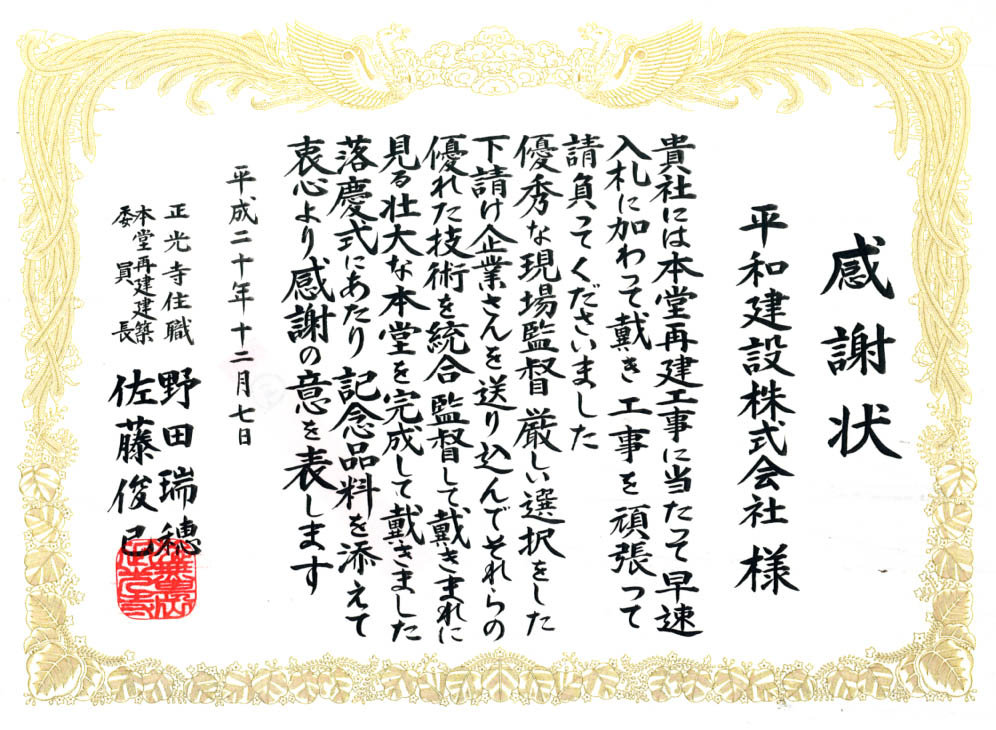 感謝状
平和建設株式会社 様
貴社には本堂再建工事に当たって早速
入札に加わって戴き工事を頑張って
請負ってくださいました
優秀な現場監督 厳しい選択をした
下請け企業さんを送り込んでそれらの
優れた技術を統合監督して戴きまれに
見る壮大な本堂を完成して戴きました
落慶式にあたり 記念品料を添えて
衷心より感謝の意を表します
平成二十年十二月七日
正光寺住職 野田瑞穂
本堂再建建築委員長 佐藤俊己